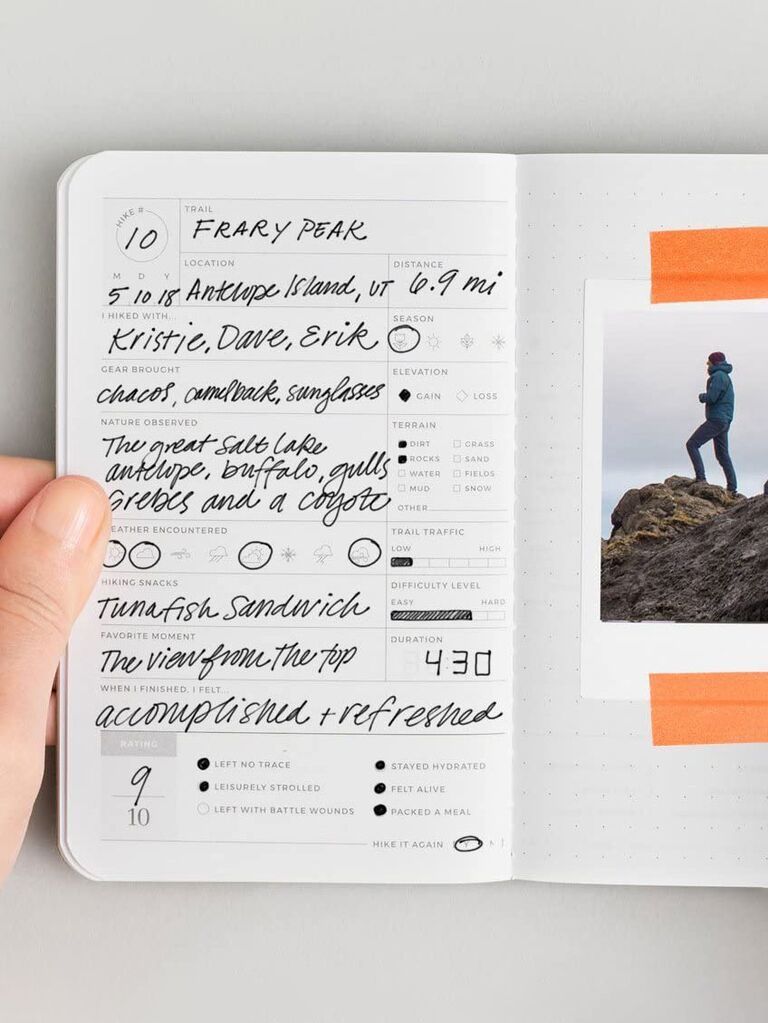 HIKE #
10
TRAIL
FRARY PEAK
M D Y
5 10 18
LOCATION
Antelope Island, UT
DISTANCE
6.9 mi
I HIKED WITH...
Kristie, Dave, Erik
SEASON
GEAR BROUGHT
chacos, camelback, sunglasses
ELEVATION
GAIN LOSS
NATURE OBSERVED
The great Salt Lake
antelope, buffalo, gulls
Grebes and a coyote
TERRAIN
DIRT GRASS
ROCKS SAND
WATER FIELDS
MUD SNOW
OTHER
EATHER ENCOUNTERED
TRAIL TRAFFIC
LOW HIGH
HIKING SNACKS
Tunafish Sandwich
DIFFICULTY LEVEL
EASY HARD
FAVORITE MOMENT
The view from the top
DURATION
4 30
WHEN I FINISHED, I FELT...
accomplished + refreshed
RATING
9
10
LEFT NO TRACE
LEISURELY STROLLED
LEFT WITH BATTLE WOUNDS
STAYED HYDRATED
FELT ALIVE
PACKED A MEAL
HIKE IT AGAIN Y N